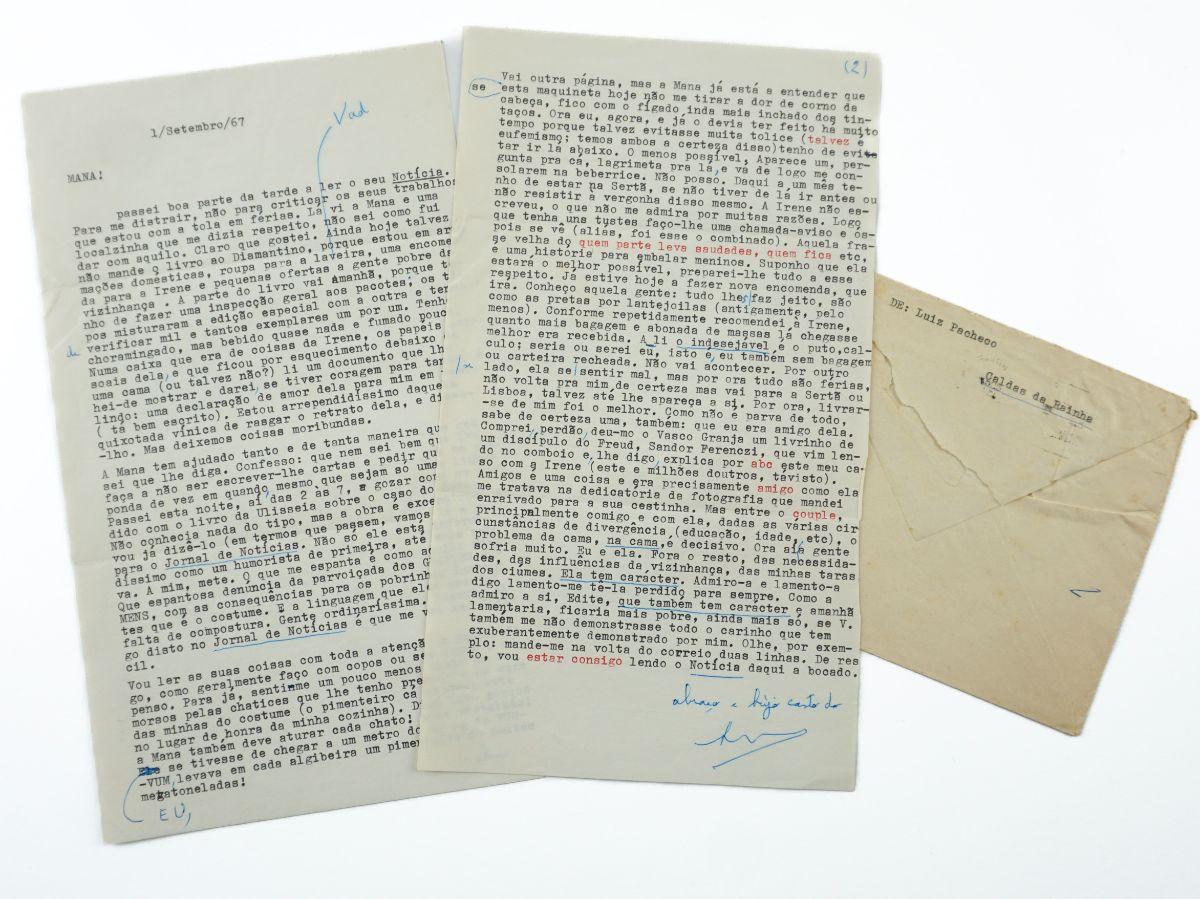 1/Setembro/67
Vad
MANA!
passei boa parte da tarde a ler o seu Notícia.
Para me distrair, não para criticar os seus trabalhos
que estou com a tola em férias. Lá vi a Mana e uma
localzinha que me dizia respeito, não sei como fui
dar com aquilo. Claro que gostei. Ainda hoje talvez
não mande o livro ao Diamantino, porque estou em ar
mações domésticas, roupa para a laveira, uma encome
da para a Irene e pequenas ofertas a gente pobre da
vizinhança . A parte do livro vai Amanhã, porque t
nho de fazer uma inspecção geral aos pacotes; os t
pos misturaram a edição especial com a outra e ten
de verificar mil e tantos exemplares um por um. Tenho
choramingado, mas bebido quase nada e fumado pouc
Numa caixa que era de coisas da Irene, os papéis
scais dela, e que ficou por esquecimento debaixo
uma cama (ou talvez não?) li um documento que lh
hei-de mostrar e darei, se tiver coragem para tan
lindo: uma declaração de amor dela para mim em
( tá bem escrito). Estou arrependidíssimo daque
quixotada vínica de rasgar o retrato dela, e di
-lho. Mas deixemos coisas moribundas.
A Mana tem ajudado tanto e de tanta maneira qu
sei que lhe diga. Confesso: que nem sei bem qu
faça a não ser escrever-lhe cartas e pedir qu
ponda de vez em quando, mesmo que sejam só uma
Passei esta noite, aí das 2 às 7, a gozar com
dido com o livro da Ulisseia sobre o caso do
Não conhecia nada do tipo, mas a obra é exce
vou já dizê-lo (em termos que passem, vamos
para o Jornal de Notícias. Não só ele está
díssimo como um humorista de primeira, até
va. A mim, mete. O que me espanta é como ac
Que espantosa denúncia da parvoiçada dos G
MENS, com as consequências para os pobrinh
tes que é o costume. E a linguagem que ele
falta de compostura. Gente ordinaríssima.
go disto no Jornal de Notícias e que me v
cil.
Vou ler as suas coisas com toda a atençã
go, como geralmente faço com copos ou se
penso. Para já, sentinme um pouco menos
morsos pelas chatices que lhe tenho pre
das minhas do costume (o pimenteiro cá
no lugar de honra da minha cozinha). D
a Mana também deve aturar cada chato!
se tivesse de chegar a um metro do
-VUM, levava em cada algibeira um pimen
megatoneladas!
EU,
(2)
Vai outra página, mas a Mana já está a entender que
se esta maquineta hoje não me tirar a dor de corno da
cabeça, fico com o fígado inda mais inchado dos tin-
taços. Ora eu, agora, e já o devia ter feito há muito
tempo porque talvez evitasse muita tolice (talvez é
eufemismo; temos ambos a certeza disso)tenho de evi
tar ir lá abaixo. O menos possível. Aparece um, per-
gunta pra cá, lagrimeta pra lá, e vá de logo me con-
solarem na beberrice. Não posso. Daqui a um mês te-
nho de estar na Sertã, se não tiver de lá ir antes ou
não resistir à vergonha disso mesmo. A Irene não es-
creveu, o que não me admira por muitas razões. Logo
que tenha uns tustes faço-lhe uma chamada-aviso e os-
pois se vê (alias, foi esse o combinado). Aquela fra-
se velha do quem parte leva saudades, quem fica etc,
e uma história para embalar meninos. Suponho que ela
estará o melhor possível, preparei-lhe tudo a esse
respeito. Já estive hoje a fazer nova encomenda, que
irá. Conheço aquela gente: tudo lhes faz jeito, são
como as pretas por lantejoilas (antigamente, pelo
menos). Conforme repetidamente recomendei à Irene,
quanto mais bagagem e abonada de massas lá chegasse
melhor era recebida. A li o indesejavel e o puto,cal-
culo; seria ou serei eu, isto é, eu também sem bagagem
ou carteira recheada. Não vai acontecer. Por outro
lado, ela se sentir mal, mas por ora tudo são férias,
não volta pra mim de certeza mas vai para a Sertã ou
Lisboa, talvez até lhe apareça a si. Por ora, livrar-
-se de mim foi o melhor. Como não é parva de todo,
sabe de certeza uma, também: que eu era amigo dela.
Comprei, perdão, deu-mo o Vasco Granja um livrinho de
um discípulo do Freud, Sandor Ferenczi, que vim len-
do no comboio e, lhe digo, explica por abc este meu ca-
so com a Irene (este e milhões doutros, tàvisto).
Amigos e uma coisa e era precisamente amigo como ela
me tratava na dedicatória da fotografia que mandei
enraivado para a sua cestinha. Mas entre o couple,
principalmente comigo e com ela, dadas as várias cir
cunstâncias de divergência (educação, idade, etc), o
problema da cama, na cama,é decisivo. Ora aí a gente
sofria muito. Eu e ela. Fora o resto, das necessida-
des, das influências da vizinhança, das minhas taras
dos ciúmes. Ela tem carácter. Admiro-a e lamento-a
digo lamento-me tê-la perdido para sempre. Como a
admiro a si, Edite, que também tem carácter e amanhã
lamentaria, ficaria mais pobre, ainda mais só, se V.
também me não demonstrasse todo o carinho que tem
exuberantemente demonstrado por mim. Olhe, por exem-
plo: mande-me na volta do correio duas linhas. De res
to, vou estar consigo lendo o Notícia daqui a bocado.
abraço e bijo casto do
DE: Luiz Pacheco
Caldas da Rainha